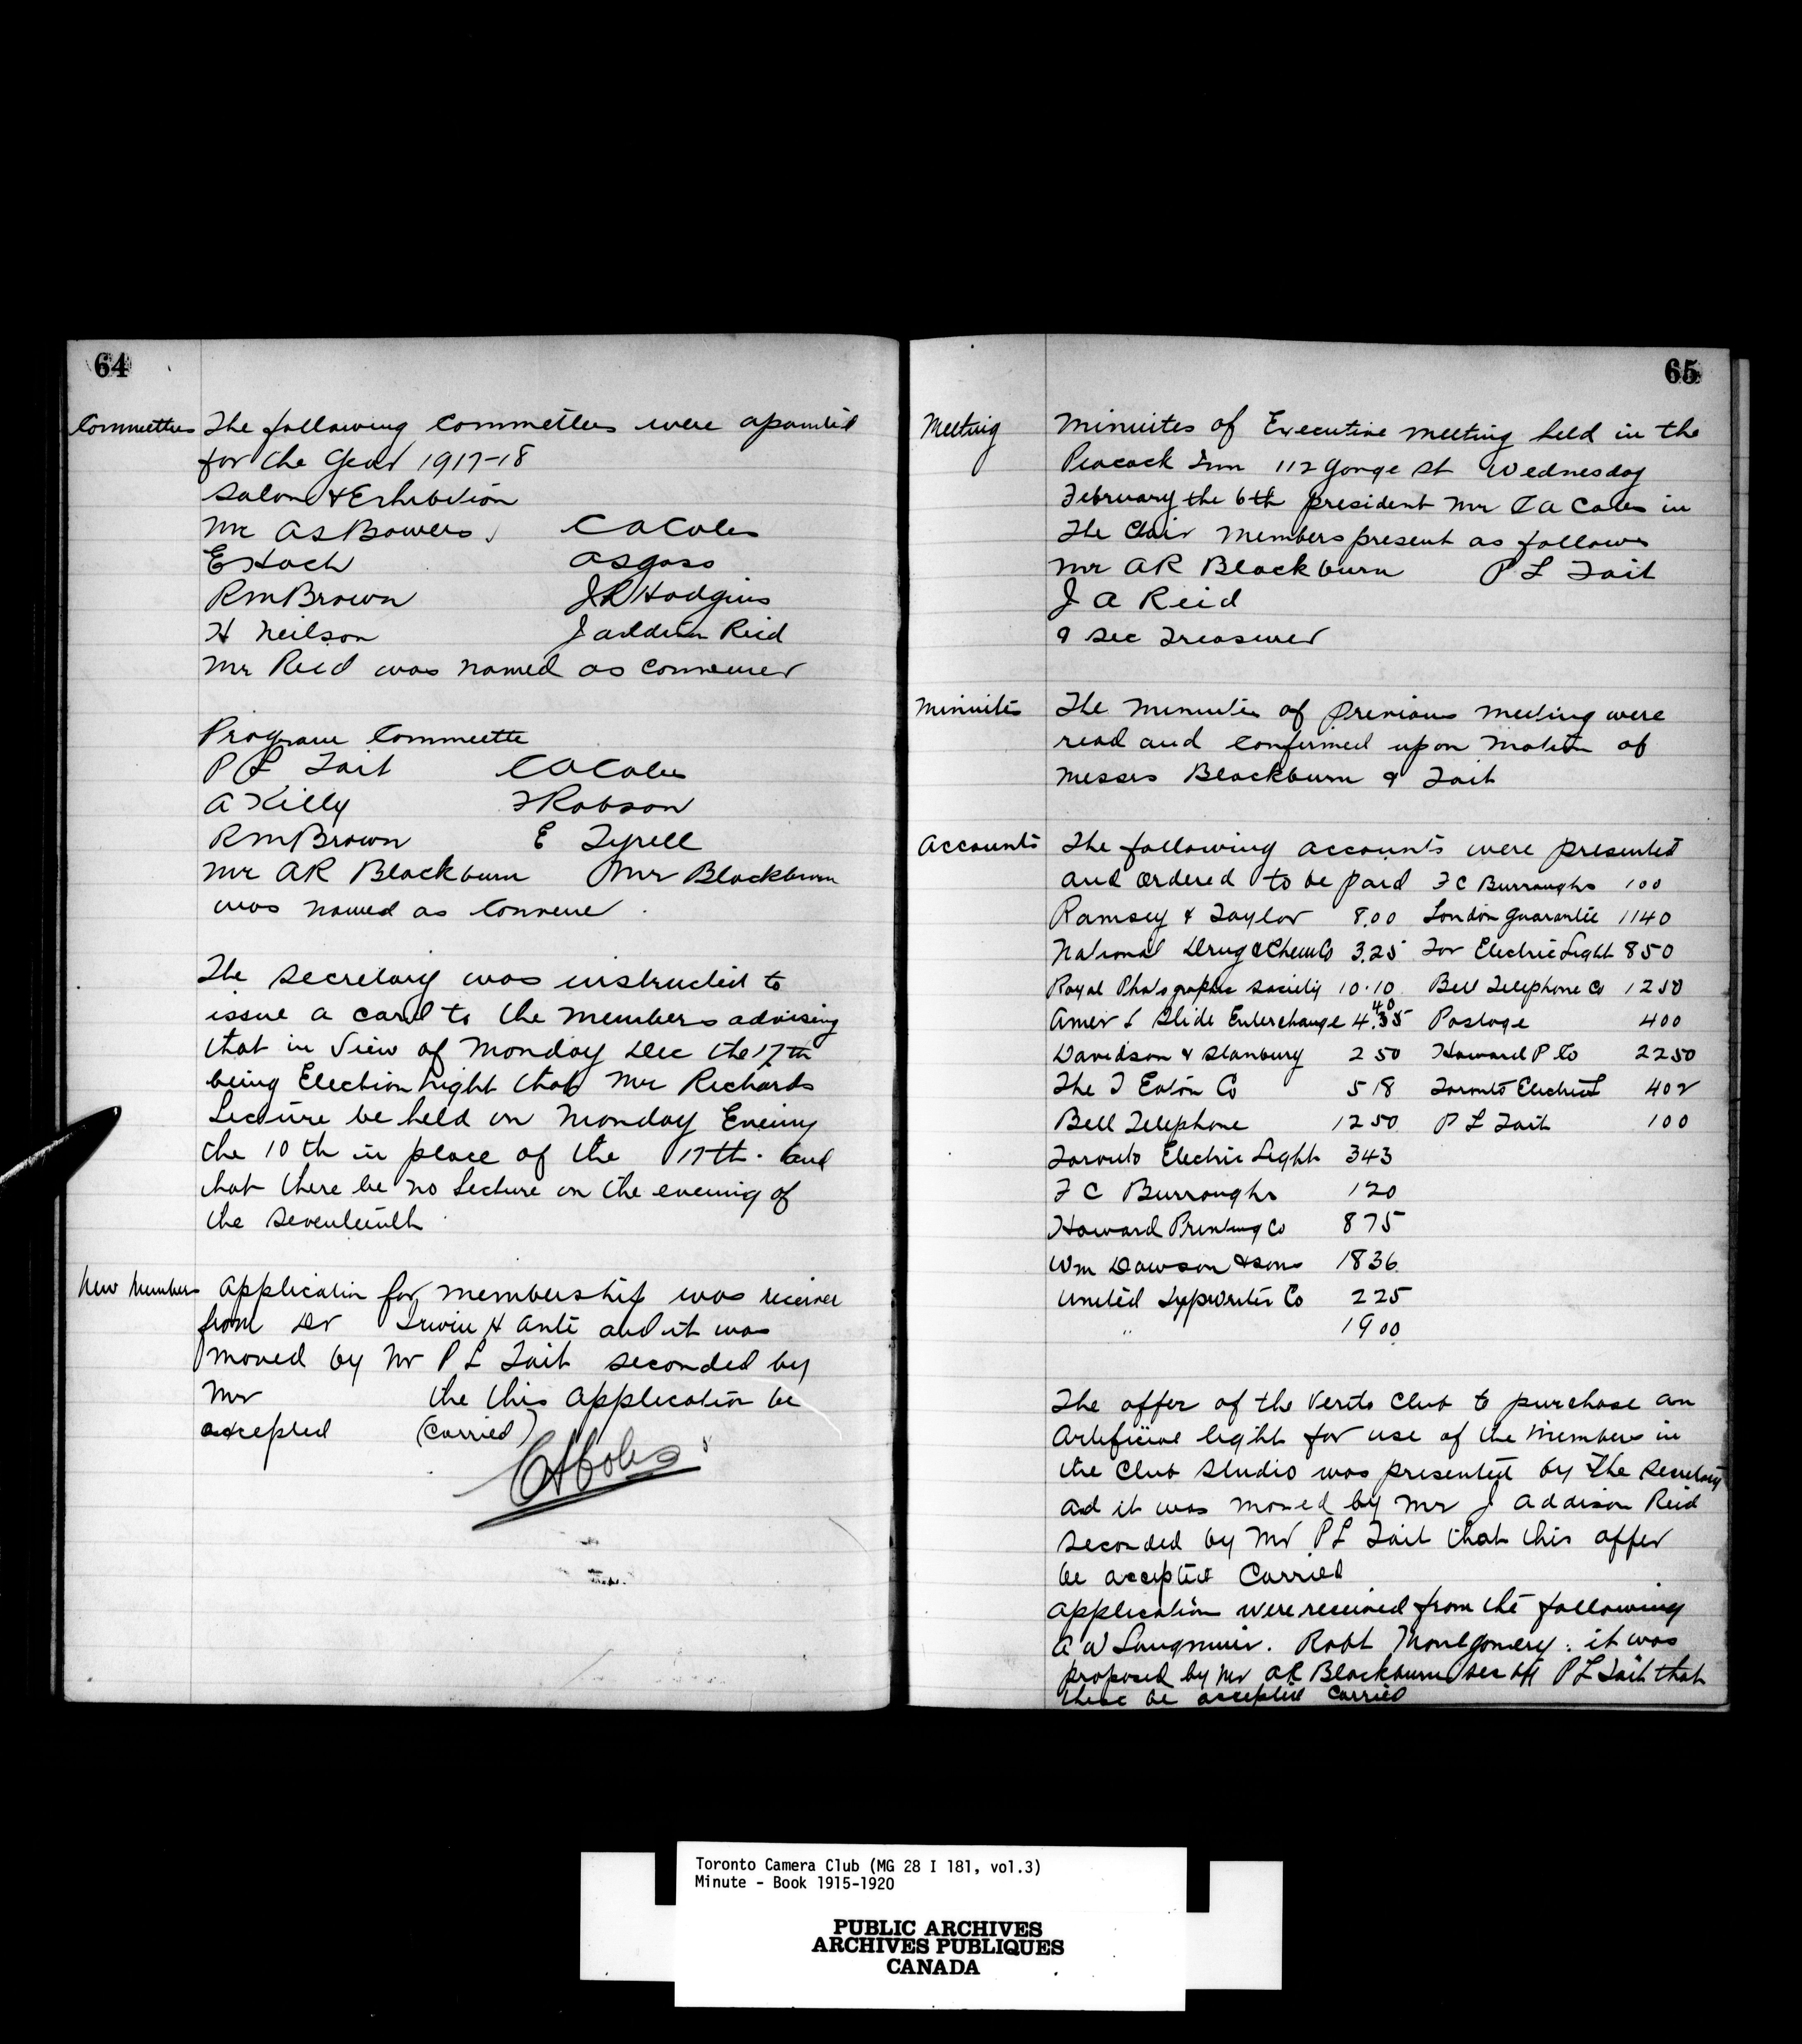 64
Committees The following Committees were apointed
for the Year 1917-18
Salon & Exhibition
Mr A S Bowers, C A Coles
E Hoch A S Goss
R M Brown J R Hodgins
H Neilson J Addison Reid
Mr Reid was named as Convener
Program Committe
P L Tait C A Coles
A Killy F Robson
R M Brown E Tyrell
Mr A R Blackburn Mr Blackburn
was named as Convener.
The Secretary was instructed to
issue a card to the Members advising
that in view of Monday Dec the 17th
being Election night that Mr Richards
Lecture be held on Monday Evening
the 10th in place of the 17th. and
that there be no Lecture on the evening of
the Seventeenth
New Members Application for membership was received
from Dr Irwin H Ante and it was
moved by Mr P L Tait seconded by
Mr the this application be
accepted (Carried)
C A Coles
65
Meeting Minuites of Executive Meeting held in the
Peacock Inn 112 Yonge St Wednesday
February the 6th president Mr C A Coles in
The Chair Members present as follows
Mr A R Blackburn P L Tait
J A Reid
& Sec Treasurer
Minuites The Minuites of previous Meeting were
read and confirmed upon Motion of
Messrs Blackburn & Tait
Accounts The following accounts were presented
and ordered to be paid F C Burroughs 100
Ramsey & Taylor 8.00 London Guarantee 1140
National Drug & Chem Co 3.25 Tor Electric Light 850
Royal Photographic Society 10.10 Bell Telephone Co 1250
Amer L Slide Enterchange 4.35 40 Postage 400
Davidson & Stanbury 2 50 Howard P Co 2250
The T Eaton Co 518 Toronto Electric L 402
Bell Telephone 1250 P L Tait 100
Toronto Electric Light 343
F C Burroughs 120
Howard Printing Co 875
Wm Dawson & Sons 1836
United Typwriter Co 225
" 1900
The offer of the Verito Club to purchase an
Artificial light for use of the Members in
the Club Studio was presented by The Secretary
ad it was moved by Mr J Addison Reid
seconded by Mr P L Tait that this offer
be accepted Carried
Application were received from the following
A W Langmuir. Robt Montgomery. it was
proposed by Mr A R Blackburn sec by P L Tait that
these be accepted Carried
Toronto Camera Club (MG 28 I 181, vol.3)
Minute - Book 1915-1920
PUBLIC ARCHIVES
ARCHIVES PUBLIQUES
CANADA